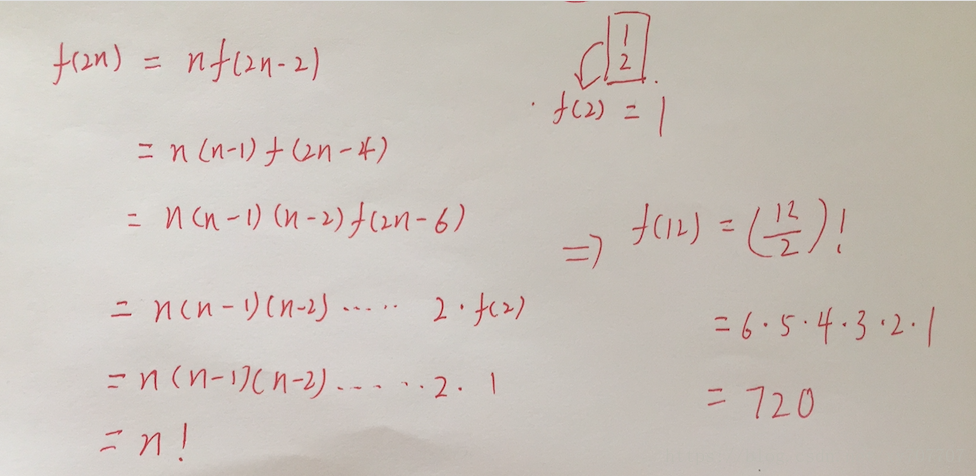 f(2n) = nf(2n-2)
= n(n-1)f(2n-4)
= n(n-1)(n-2)f(2n-6)
= n(n-1)(n-2)..... 2·f(2)
= n(n-1)(n-2)......2·1
= n!
1
2
f(2) = 1
⇒ f(12) = (12/2)!
= 6·5·4·3·2·1
= 720